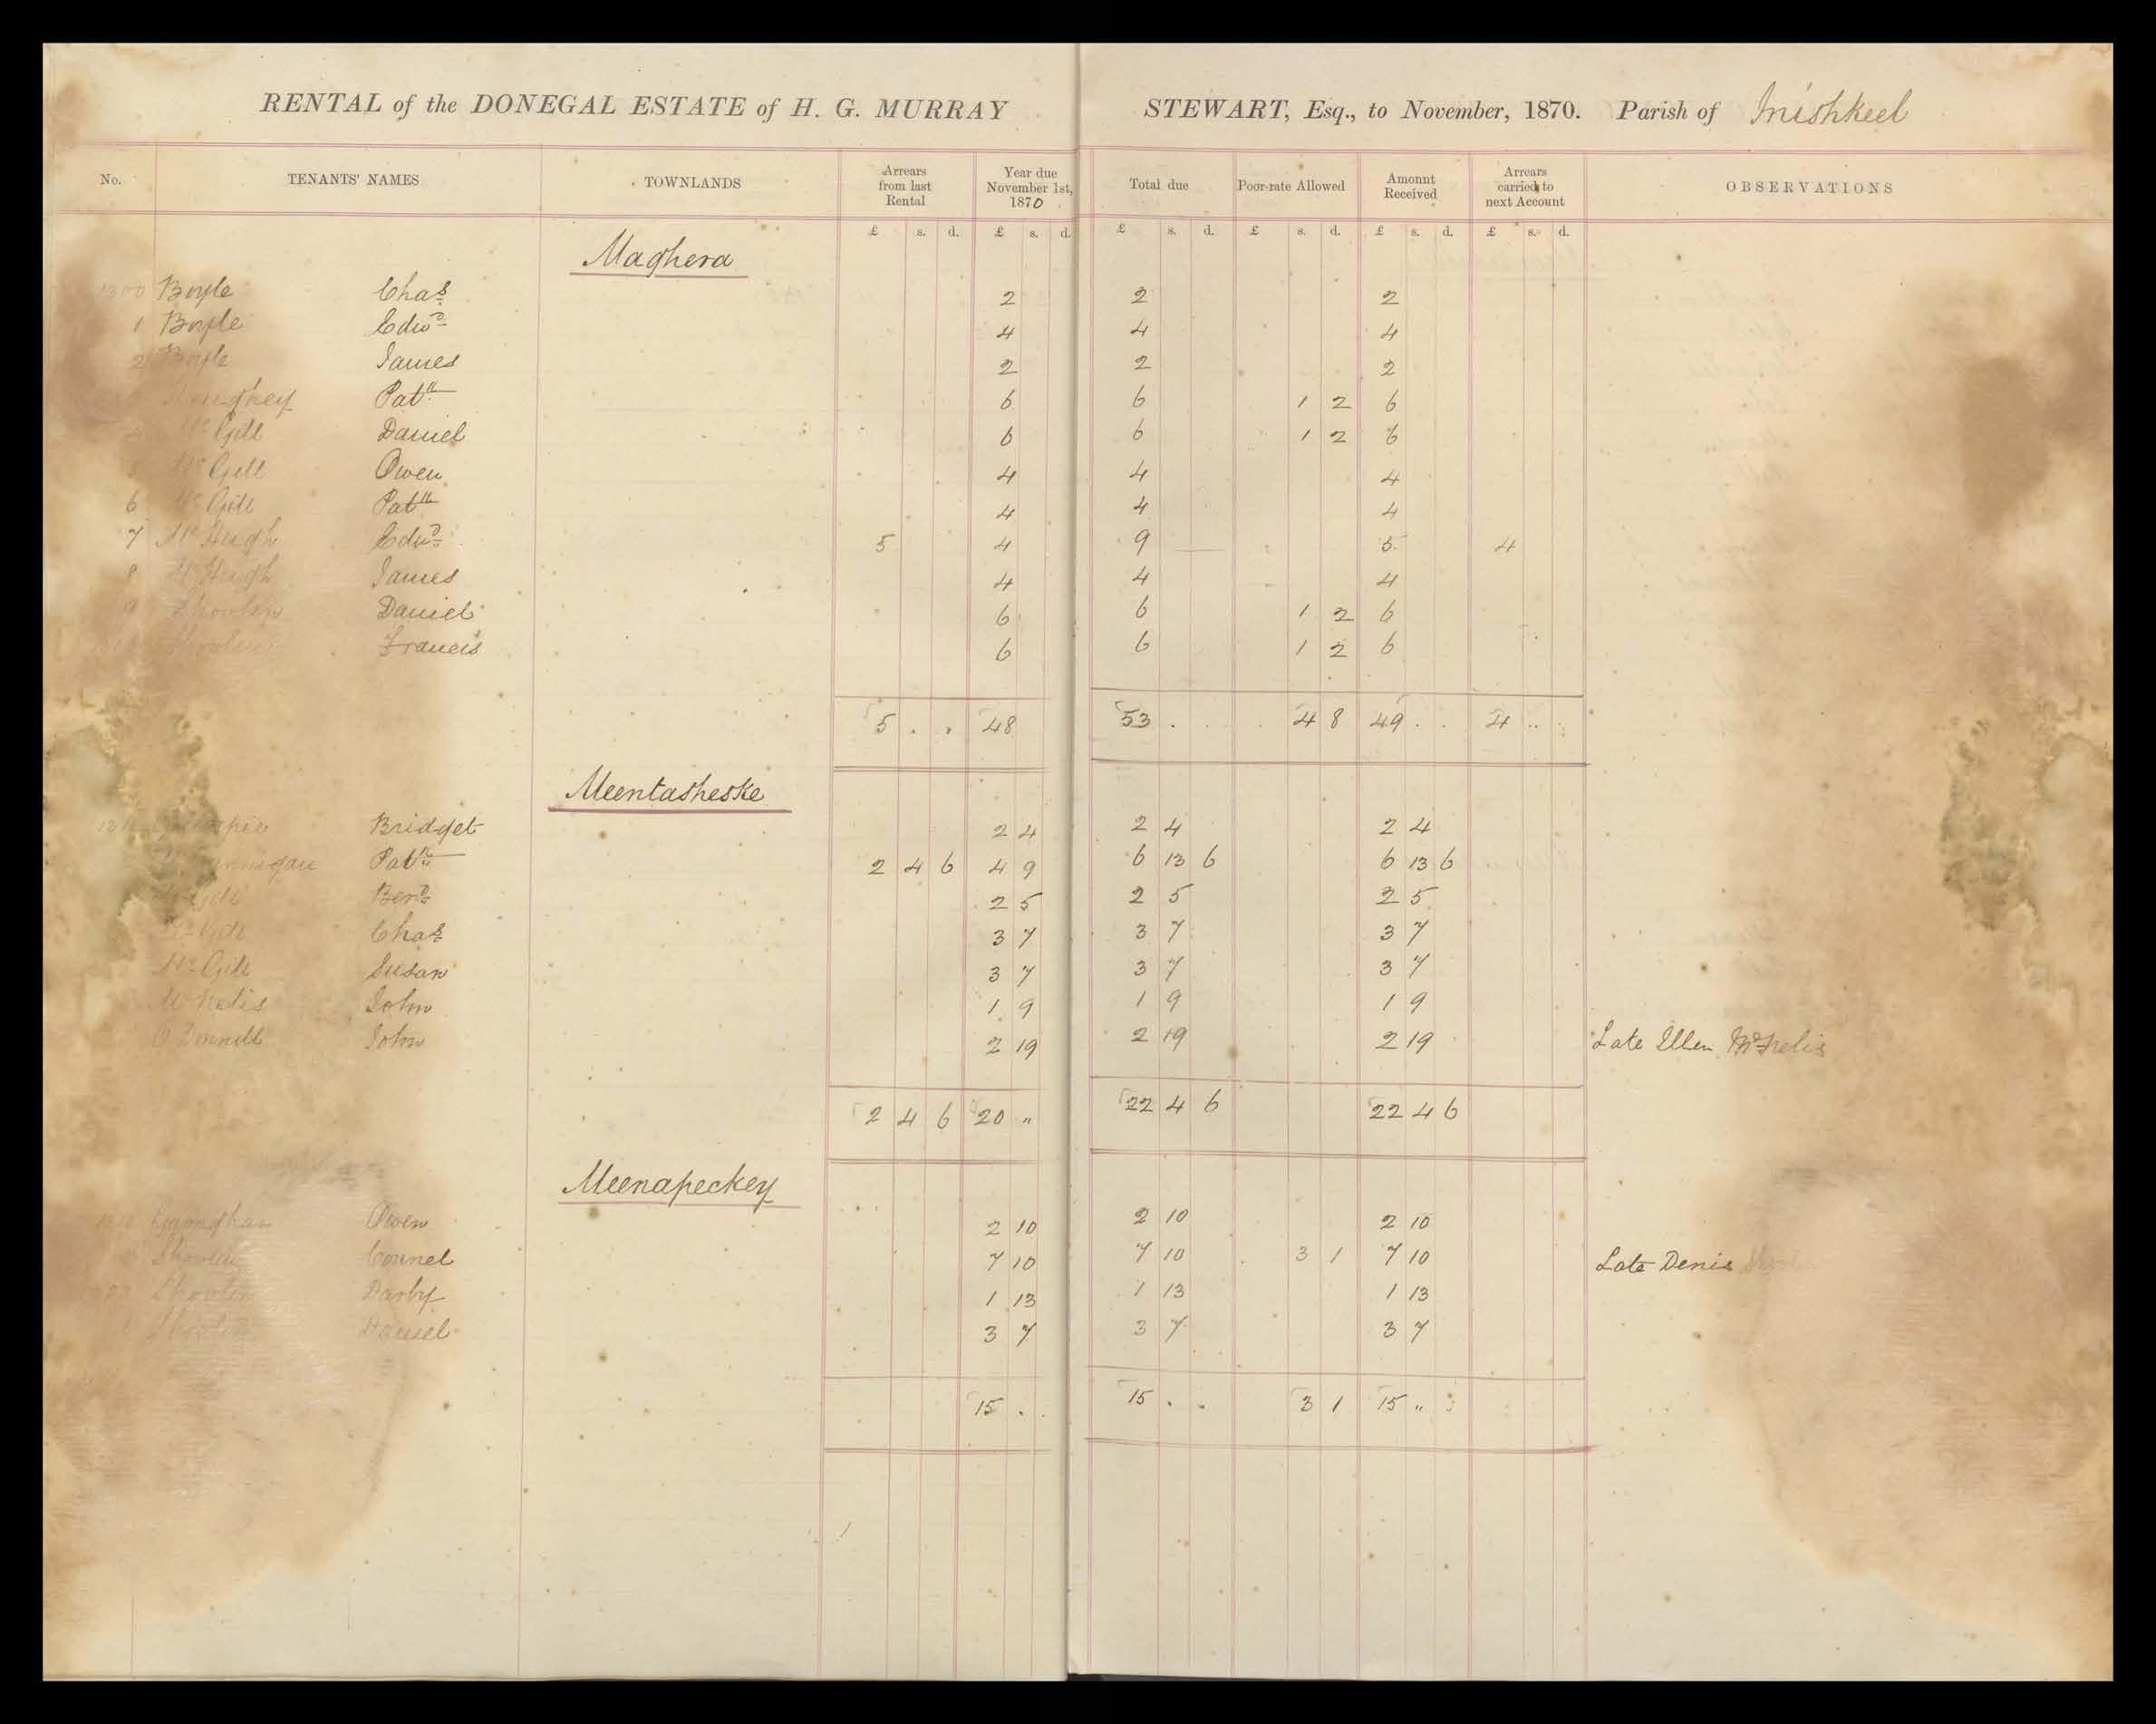 RENTAL of the DONEGAL ESTATE of H. G. MURRAY STEWART, Esq., to November, 1870. Parish of Inishkeel
No. TENANTS' NAMES TOWNLANDS Arrears from last Rental Year due November 1st, 1870 Total due Poor-rate Allowed Amount Received Arrears carried to next Account OBSERVATIONS
£ s. d. £ s. d. £ s. d. £ s. d. £ s. d. £ s. d.
Maghera
1300 Boyle Chas 2 2 2
1 Boyle Edwd 4 4 4
2 Boyle James 2 2 2
Patk 6 6 1 2 6
McGill Daniel 6 6 1 2 6
McGill Owen 4 4 4
6 McGill Patk 4 4 4
7 McHugh Edwd 5 4 9 5 4
8 McHugh James 4 4 4
9 Shovlin Daniel 6 6 1 2 6
Shovlin Francis 6 6 1 2 6
5 . . 48 53 . . 4 8 49 . . 4 ..
Meentasheske
Bridget 2 4 2 4 2 4
Patk 2 4 6 4 9 6 13 6 6 13 6
Bernd 2 5 2 5 2 5
McGill Chas 3 7 3 7 3 7
McGill Susan 3 7 3 7 3 7
McNelis John 1 9 1 9 1 9
O'Donnell John 2 19 2 19 2 19 Late Ellen McNelis
2 4 6 20 " 22 4 6 22 4 6
Meenapeckey
Owen 2 10 2 10 2 10
Connel 7 10 7 10 3 1 7 10 Late Denis
Shovlin Darby 1 13 1 13 1 13
Shovlin Daniel 3 7 3 7 3 7
15 . . 15 . . 3 1 15 " :